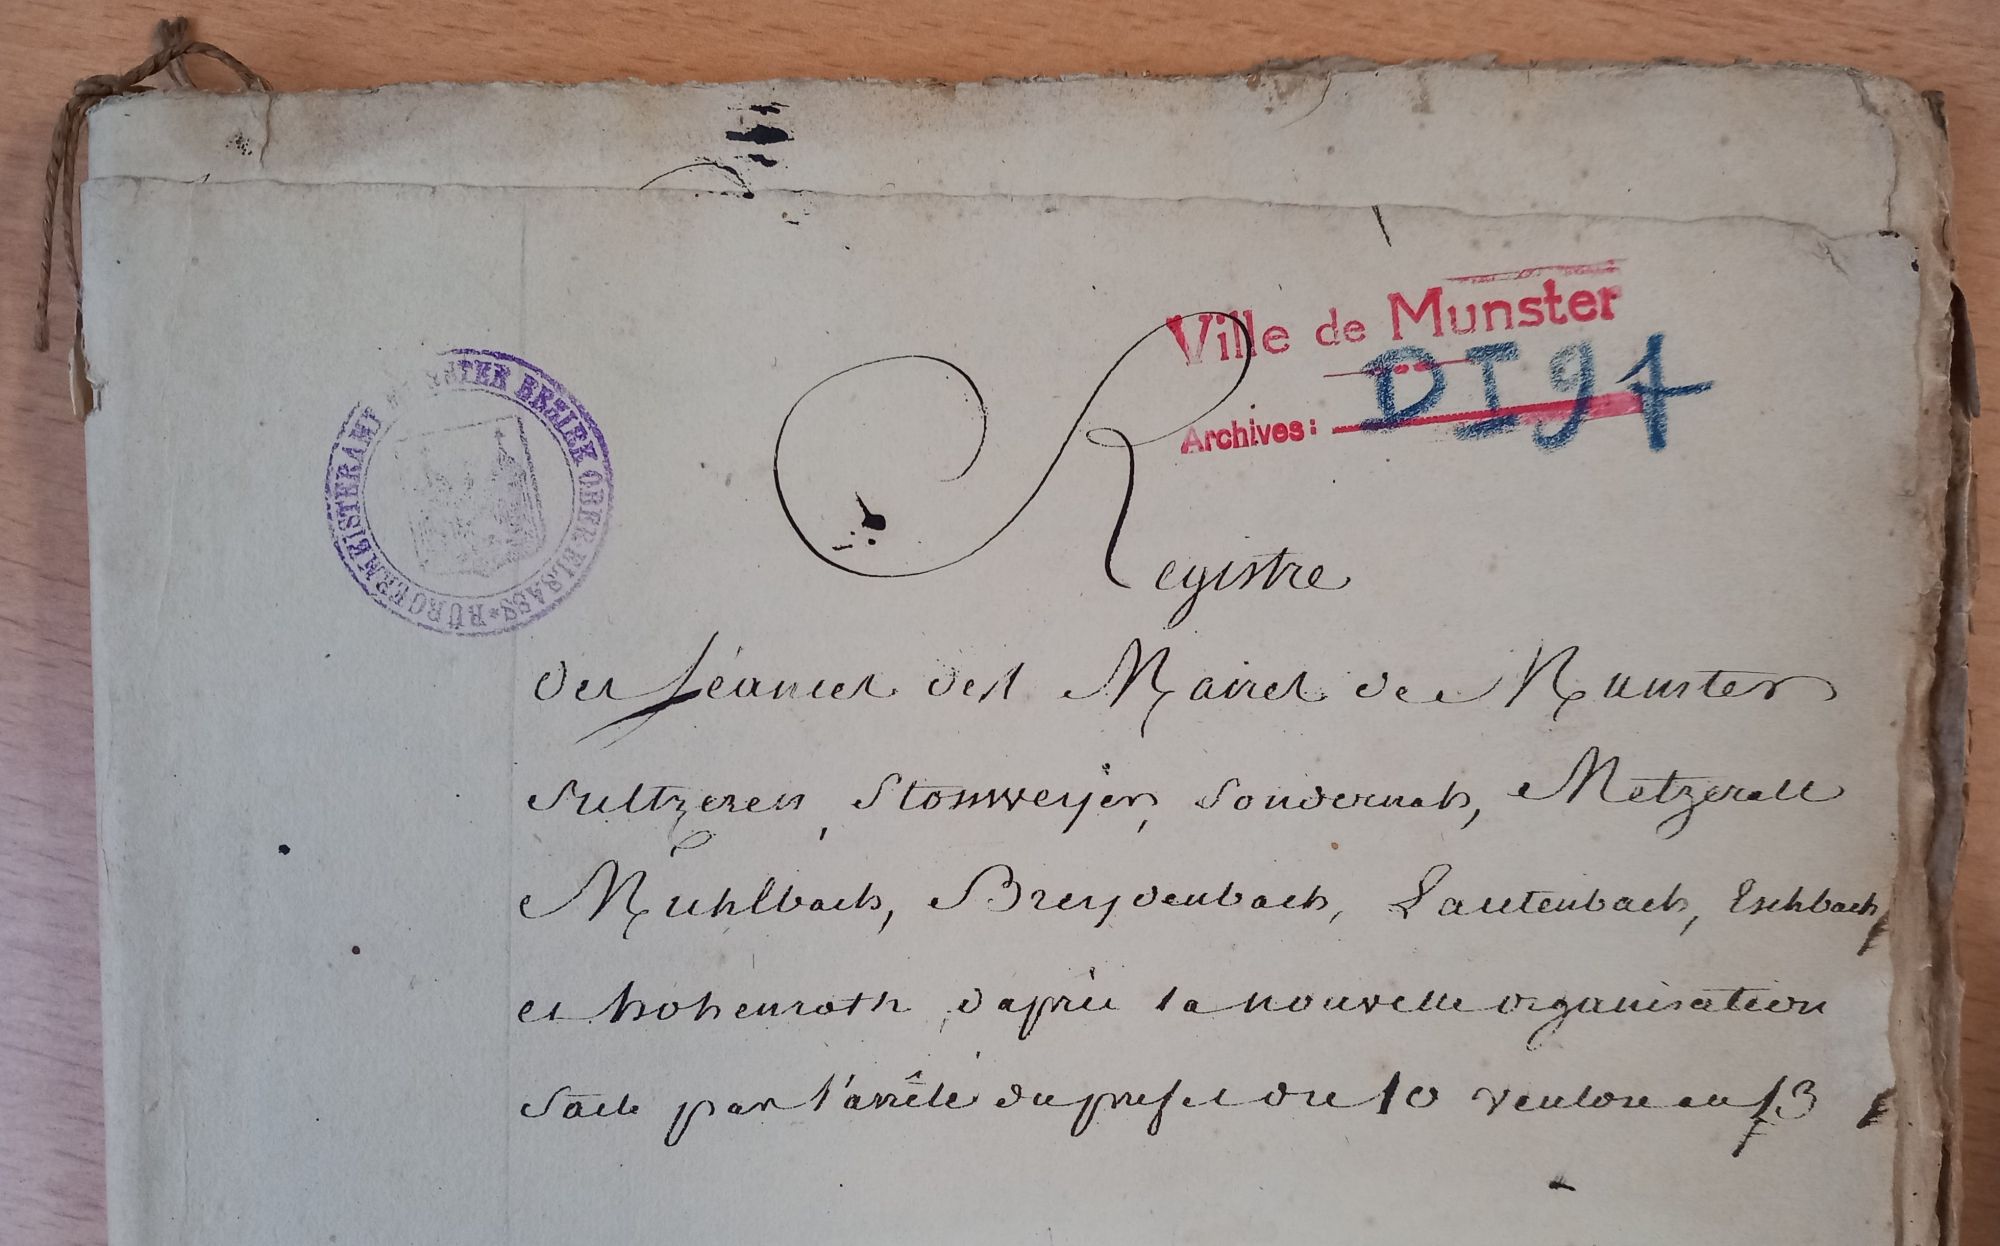 Ville de Munster
Archives: DI 97
BÜRGERMEISTERAMT MÜNSTER BEZIRK OBER ELSASS
Registre
des séances des Maires de Munster
Sultzeren, Stosweyer, Sondernach, Metzerall
Muhlbach, Breydenbach, Lautenbach, Eschbach,
et hohenroth, d'après la nouvelle organisation
par l'arrêté du prefet du 10 ventose an 13